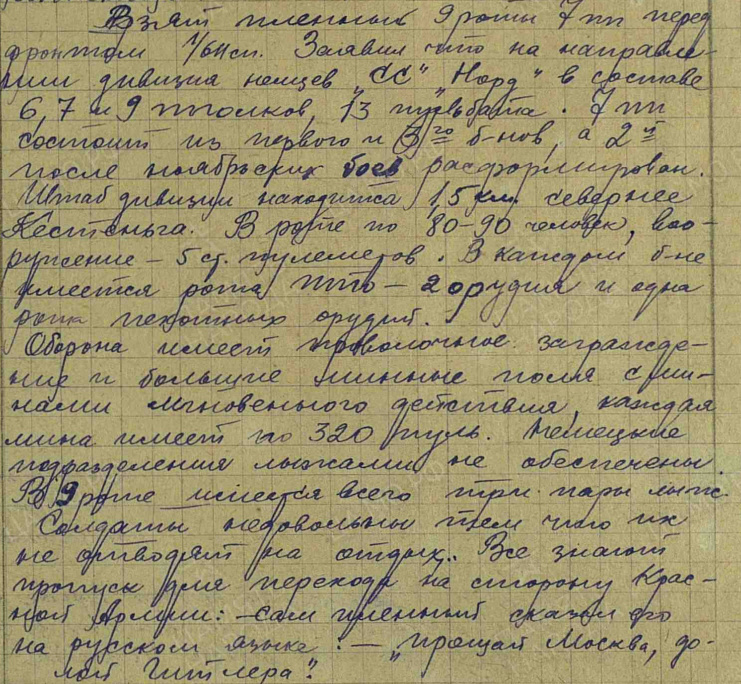 Взят пленный 9 роты 7 пп перед
фронтом 1/61 сп. Заявил что на направле-
нии дивизия немцев „СС“ „Норд“ в составе
6, 7 и 9 полков, 13
7 пп
состоит из первого и 3го б-нов, а 2й
после ноябрьских боев расформирован.
Штаб дивизии находится 1,5 км. севернее
Кестеньга. В роте по 80-90 человек, воо-
ружение – 5 ст. пулеметов. В каждом б-не
имеется рота ПТО – 2 орудия и одна
рота пехотных орудий.
Оборона имеет проволочное загражде-
ние и большие минные поля с ми-
нами мгновенного действия, каждая
мина имеет по 320 пуль. Немецкие
подразделения лыжами не обеспечены.
В 9 роте имеется всего три пары лыж.
Солдаты недовольны тем что их
не отводят на отдых. Все знают
пропуск для перехода на сторону Крас-
ной Армии: – сам пленный сказал его
на русском языке: – „прощай Москва, до-
лой Гитлера“.